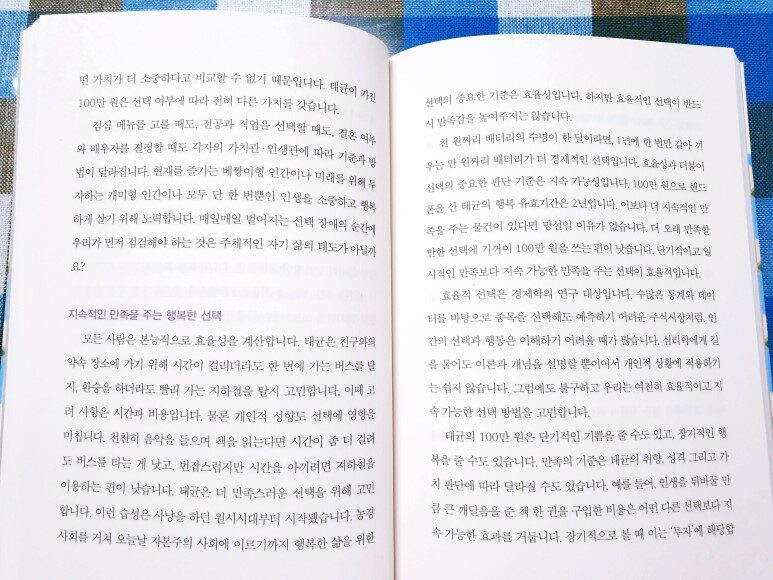 떤 가치가 더 소중하다고 비교할 수 없기 때문입니다. 태균이 가진
100만 원은 선택 여부에 따라 전혀 다른 가치를 갖습니다.
점심 메뉴를 고를 때도, 전공과 직업을 선택할 때도, 결혼 여부
와 배우자를 결정할 때도 각자의 가치관·인생관에 따라 기준과 방
법이 달라집니다. 현재를 즐기는 베짱이형 인간이나 미래를 위해 투
자하는 개미형 인간이나 모두 단 한 번뿐인 인생을 소중하고 행복
하게 살기 위해 노력합니다. 매일매일 벌어지는 선택 장애의 순간에
우리가 먼저 점검해야 하는 것은 주체적인 자기 삶의 태도가 아닐까
요?
지속적인 만족을 주는 행복한 선택
모든 사람은 본능적으로 효율성을 계산합니다. 태균은 친구와의
약속 장소에 가기 위해 시간이 걸리더라도 한 번에 가는 버스를 탈
지, 환승을 하더라도 빨리 가는 지하철을 탈지 고민합니다. 이때 고
려 사항은 시간과 비용입니다. 물론 개인적 성향도 선택에 영향을
미칩니다. 천천히 음악을 들으며 책을 읽는다면 시간이 좀 더 걸려
도 버스를 타는 게 낫고, 번잡스럽지만 시간을 아끼려면 지하철을
이용하는 편이 낫습니다. 태균은 더 만족스러운 선택을 위해 고민
합니다. 이런 습성은 사냥을 하던 원시시대부터 시작됐습니다. 농경
사회를 거쳐 오늘날 자본주의 사회에 이르기까지 행복한 삶을 위한
선택의 중요한 기준은 효율성입니다. 하지만 효율적인 선택이 반드
시 만족감을 높여주지는 않습니다.
천 원짜리 배터리의 수명이 한 달이라면, 1년에 한 번만 갈아 끼
우는 만 원짜리 배터리가 더 경제적인 선택입니다. 효율성과 더불어
선택의 중요한 판단 기준은 지속 가능성입니다. 100만 원으로 핸드
폰을 산 태균의 행복 유효기간은 2년입니다. 이보다 더 지속적인 만
족을 주는 물건이 있다면 망설일 이유가 없습니다. 더 오래 만족할
만한 선택에 기꺼이 100만 원을 쓰는 편이 낫습니다. 단기적이고 일
시적인 만족보다 지속 가능한 만족을 주는 선택이 효율적입니다.
효율적 선택은 경제학의 연구 대상입니다. 수많은 통계와 데이
터를 바탕으로 종목을 선택해도 예측하기 어려운 주식시장처럼, 인
간의 선택과 행동은 이해하기 어려울 때가 많습니다. 심리학에게 길
을 물어도 이론과 개념을 설명할 뿐이어서 개인적 상황에 적용하기
는 쉽지 않습니다. 그럼에도 불구하고 우리는 여전히 효율적이고 지
속 가능한 선택 방법을 고민합니다.
태균의 100만 원은 단기적인 기쁨을 줄 수도 있고, 장기적인 행
복을 줄 수도 있습니다. 만족의 기준은 태균의 취향, 성격 그리고 가
치 판단에 따라 달라질 수도 있습니다. 예를 들어, 인생을 뒤바꿀 만
큼 큰 깨달음을 준 책 한 권을 구입한 비용은 어떤 다른 선택보다 지
속 가능한 효과를 거둡니다. 장기적으로 볼 때 이는 ‘투자’에 해당합